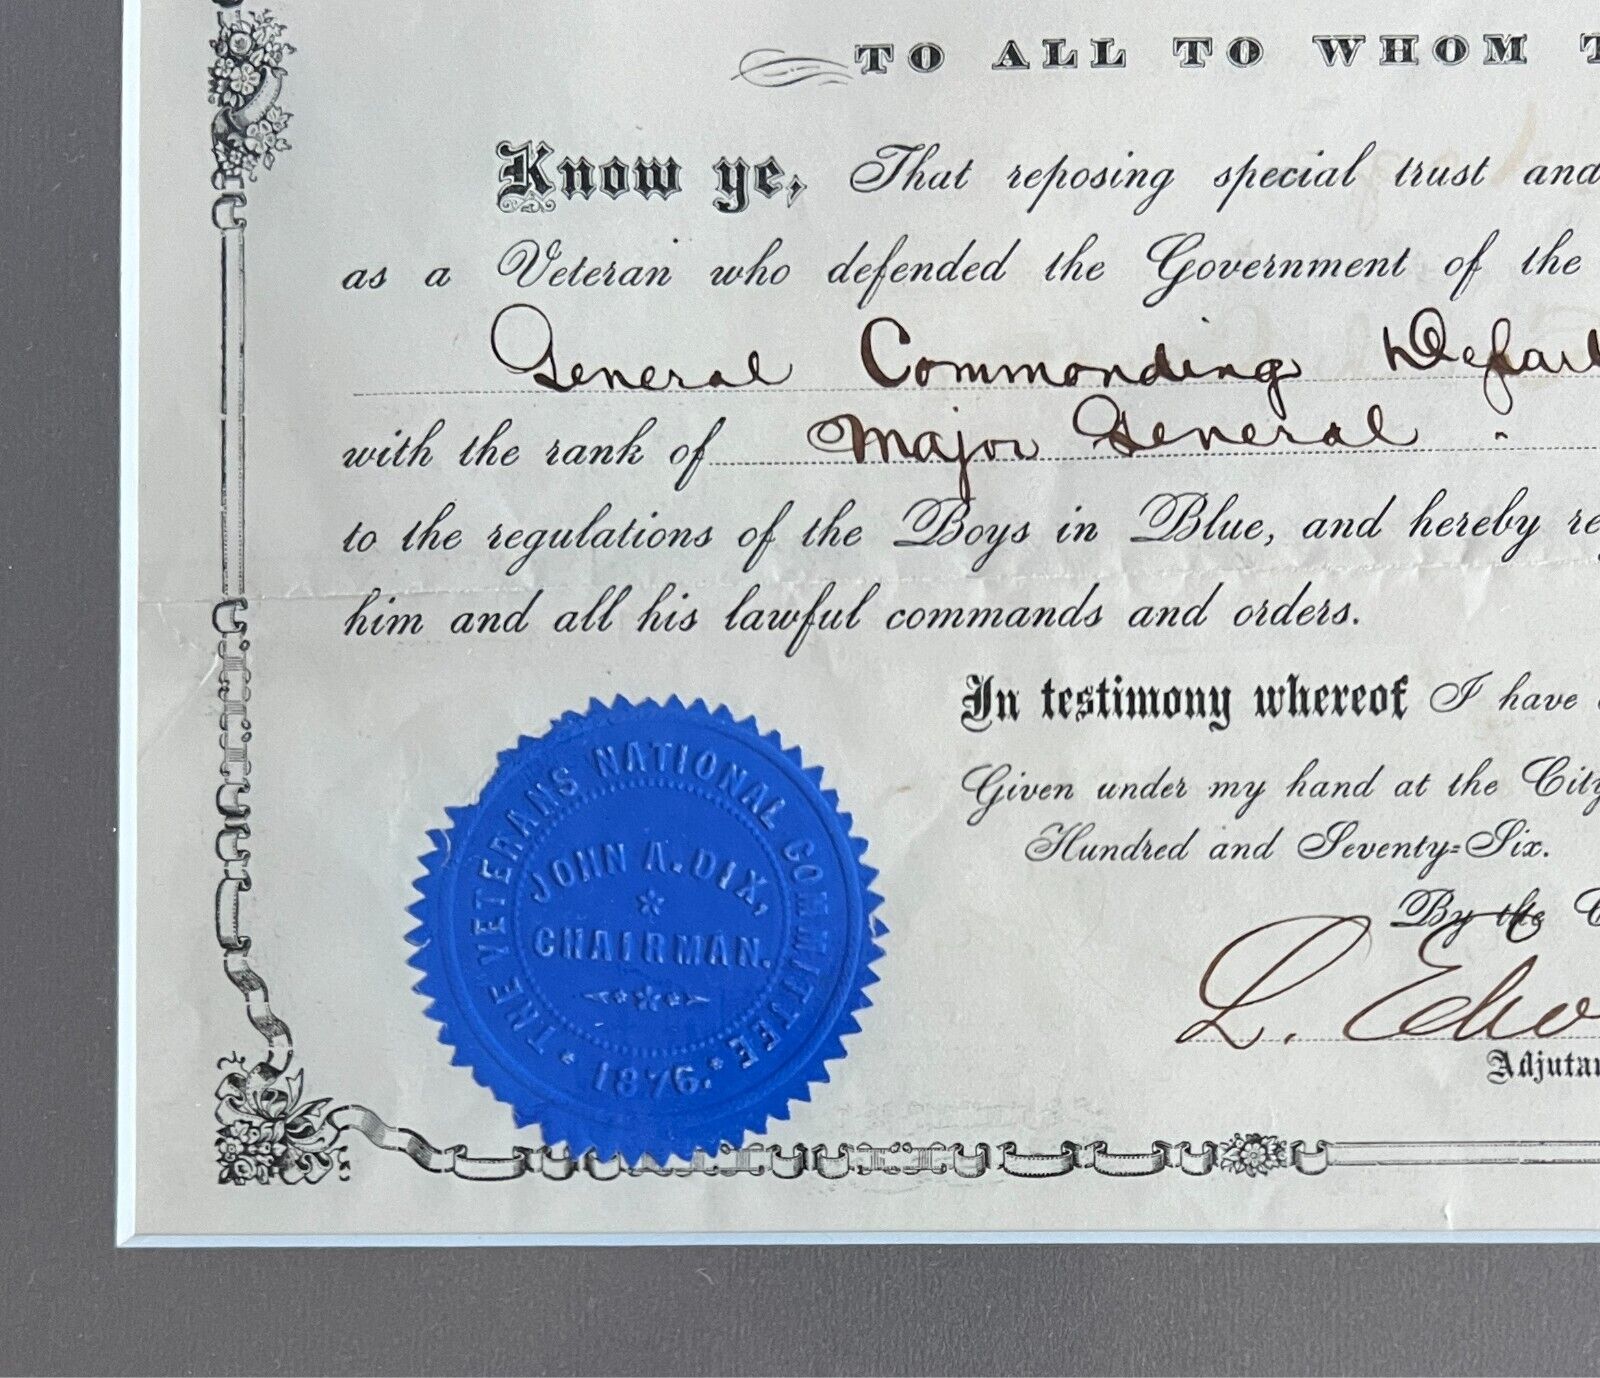 TO ALL TO WHOM
Know ye, That reposing special trust and
as a Veteran who defended the Government of the
General Commanding
with the rank of Major General.
to the regulations of the Boys in Blue, and hereby
him and all his lawful commands and orders.
In testimony whereof I have
Given under my hand at the City
Hundred and Seventy-Six.
By the
L.
THE VETERANS NATIONAL COMMITTEE
JOHN A. DIX,
CHAIRMAN.
1876.